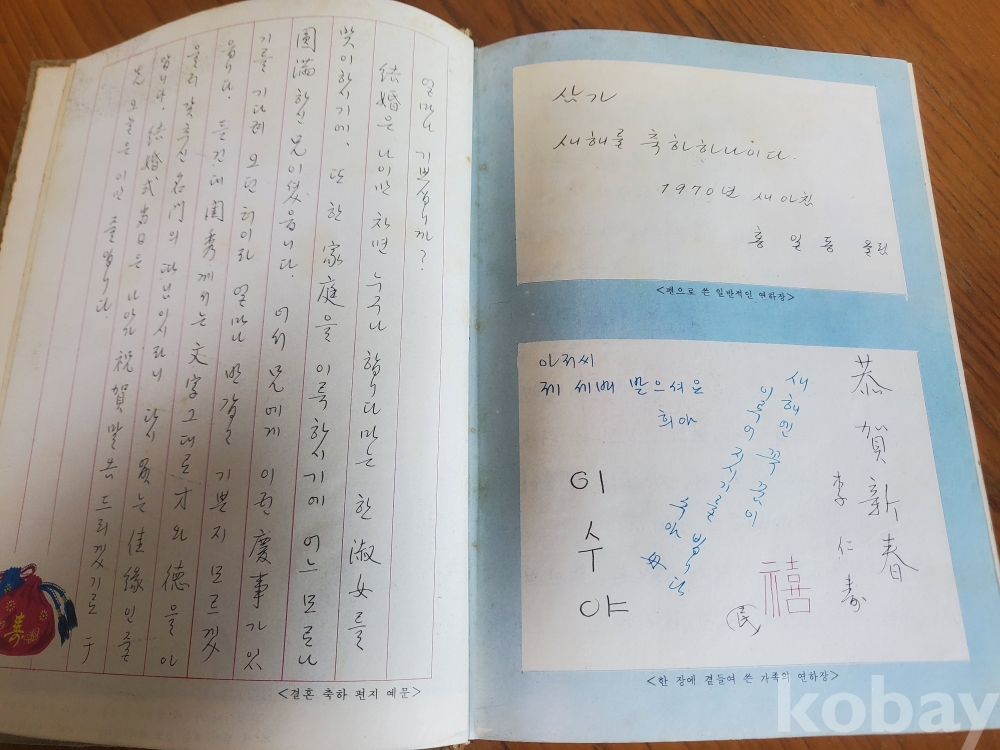 얼마나 기쁘십니까?
結婚은 나이만 차면 누구나 합니다마는 한 淑女를
맞이하시기에, 또 한 家庭을 이룩하시기에 어느 모로나
圓滿하신 兄이었읍니다. 어서 兄에게 이런 慶事가 있
기를 기다려 오던 터이라 얼마나 반갑고 기쁜지 모르겠
읍니다. 듣건대 閨秀께서는 文字 그대로 才와 德을 아
울러 갖추신 名門의 따님이시라니 다시 없는 佳緣인줄
압니다. 結婚式 当日은 나아가 祝賀말씀 드리겠기로 우
先 오늘은 이만 줄입니다.
<결혼 축하 편지 예문>
삼가
새해를 축하하나이다.
1970년 새아침
홍 일 동 올림
<펜으로 쓴 일반적인 연하장>
恭賀新春
李仁壽
禧
民
새해엔 꾸꿈이
이루어지시기를
수아 母
아저씨
제 세배 받으셔요
희아
이수야
<한 장에 곁들여 쓴 가족의 연하장>
壽
kobay